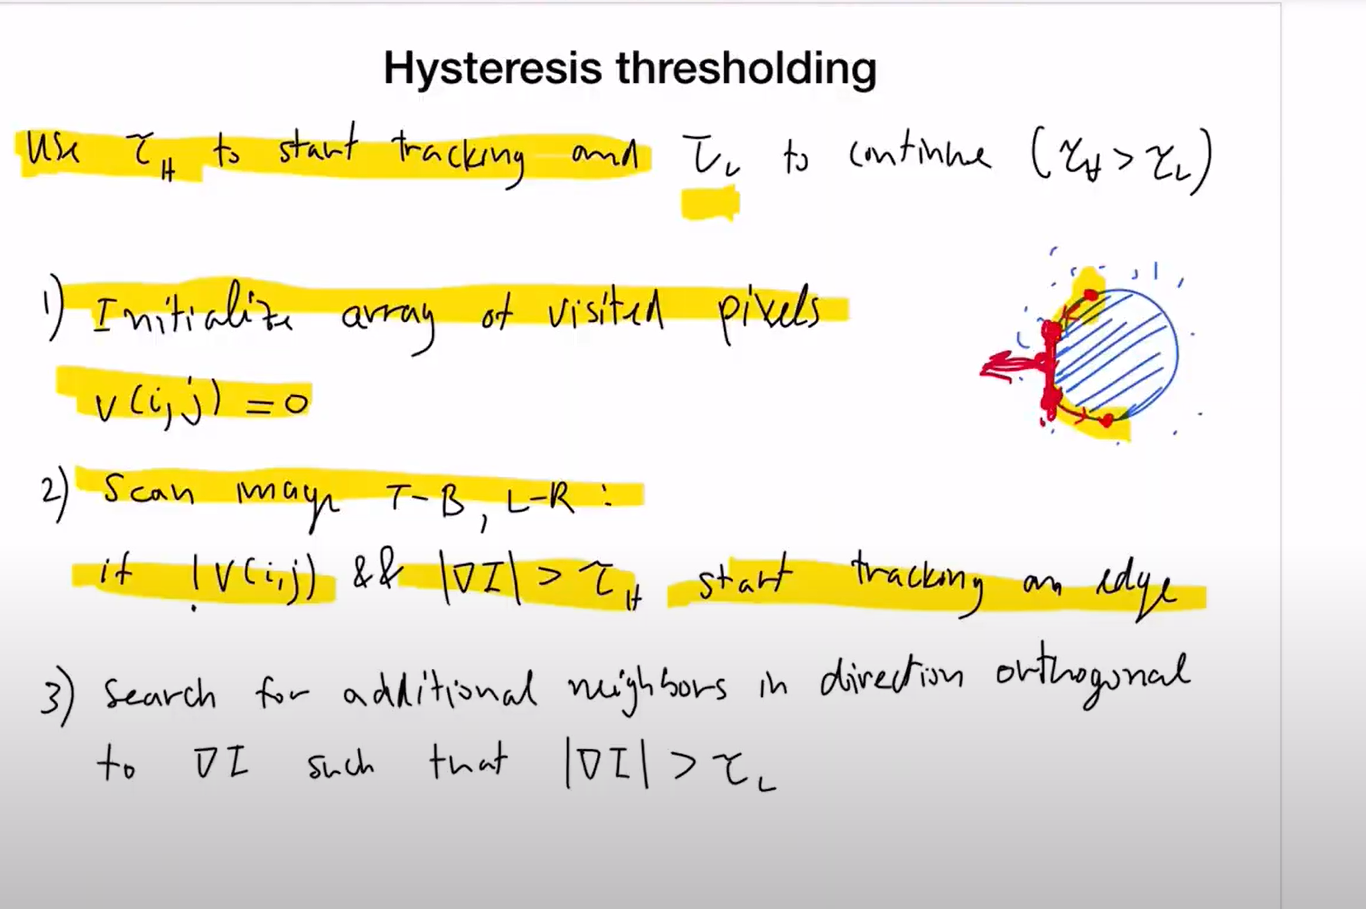 Hysteresis thresholding
Use τH to start tracking and τL to continue (τH > τL)
1) Initialize array of visited pixels
v(i,j) = 0
2) Scan image T-B, L-R :
if !V(i,j) && |∇I| > τH start tracking an edge
3) Search for additional neighbors in direction orthogonal
to ∇I such that |∇I| > τL